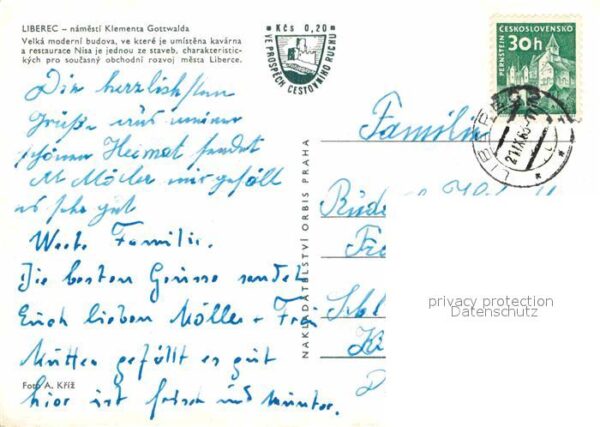 LIBEREC – náměstí Klementa Gottwalda
Velká moderní budova, ve které je umístěna kavárna
a restaurace Nisa je jednou ze staveb, charakteristic-
kých pro současný obchodní rozvoj města Liberce.
Kčs 0,20
VE PROSPĚCH CESTOVNÍHO RUCHU
ČESKOSLOVENSKO
30h
PERNŠTEJN
LIBEREC
Die herzlichsten
Grüße aus meiner
schönen Heimat sendet
M. mir gefällt
es sehr gut
Werte Familie.
Die besten Grüsse sendet
Euch lieben Möller + Frau
Mutter gefällt es gut
hier ist frisch und munter.
Foto A. Kříž
NAKLADATELSTVÍ ORBIS PRAHA
Familie
privacy protection
Datenschutz